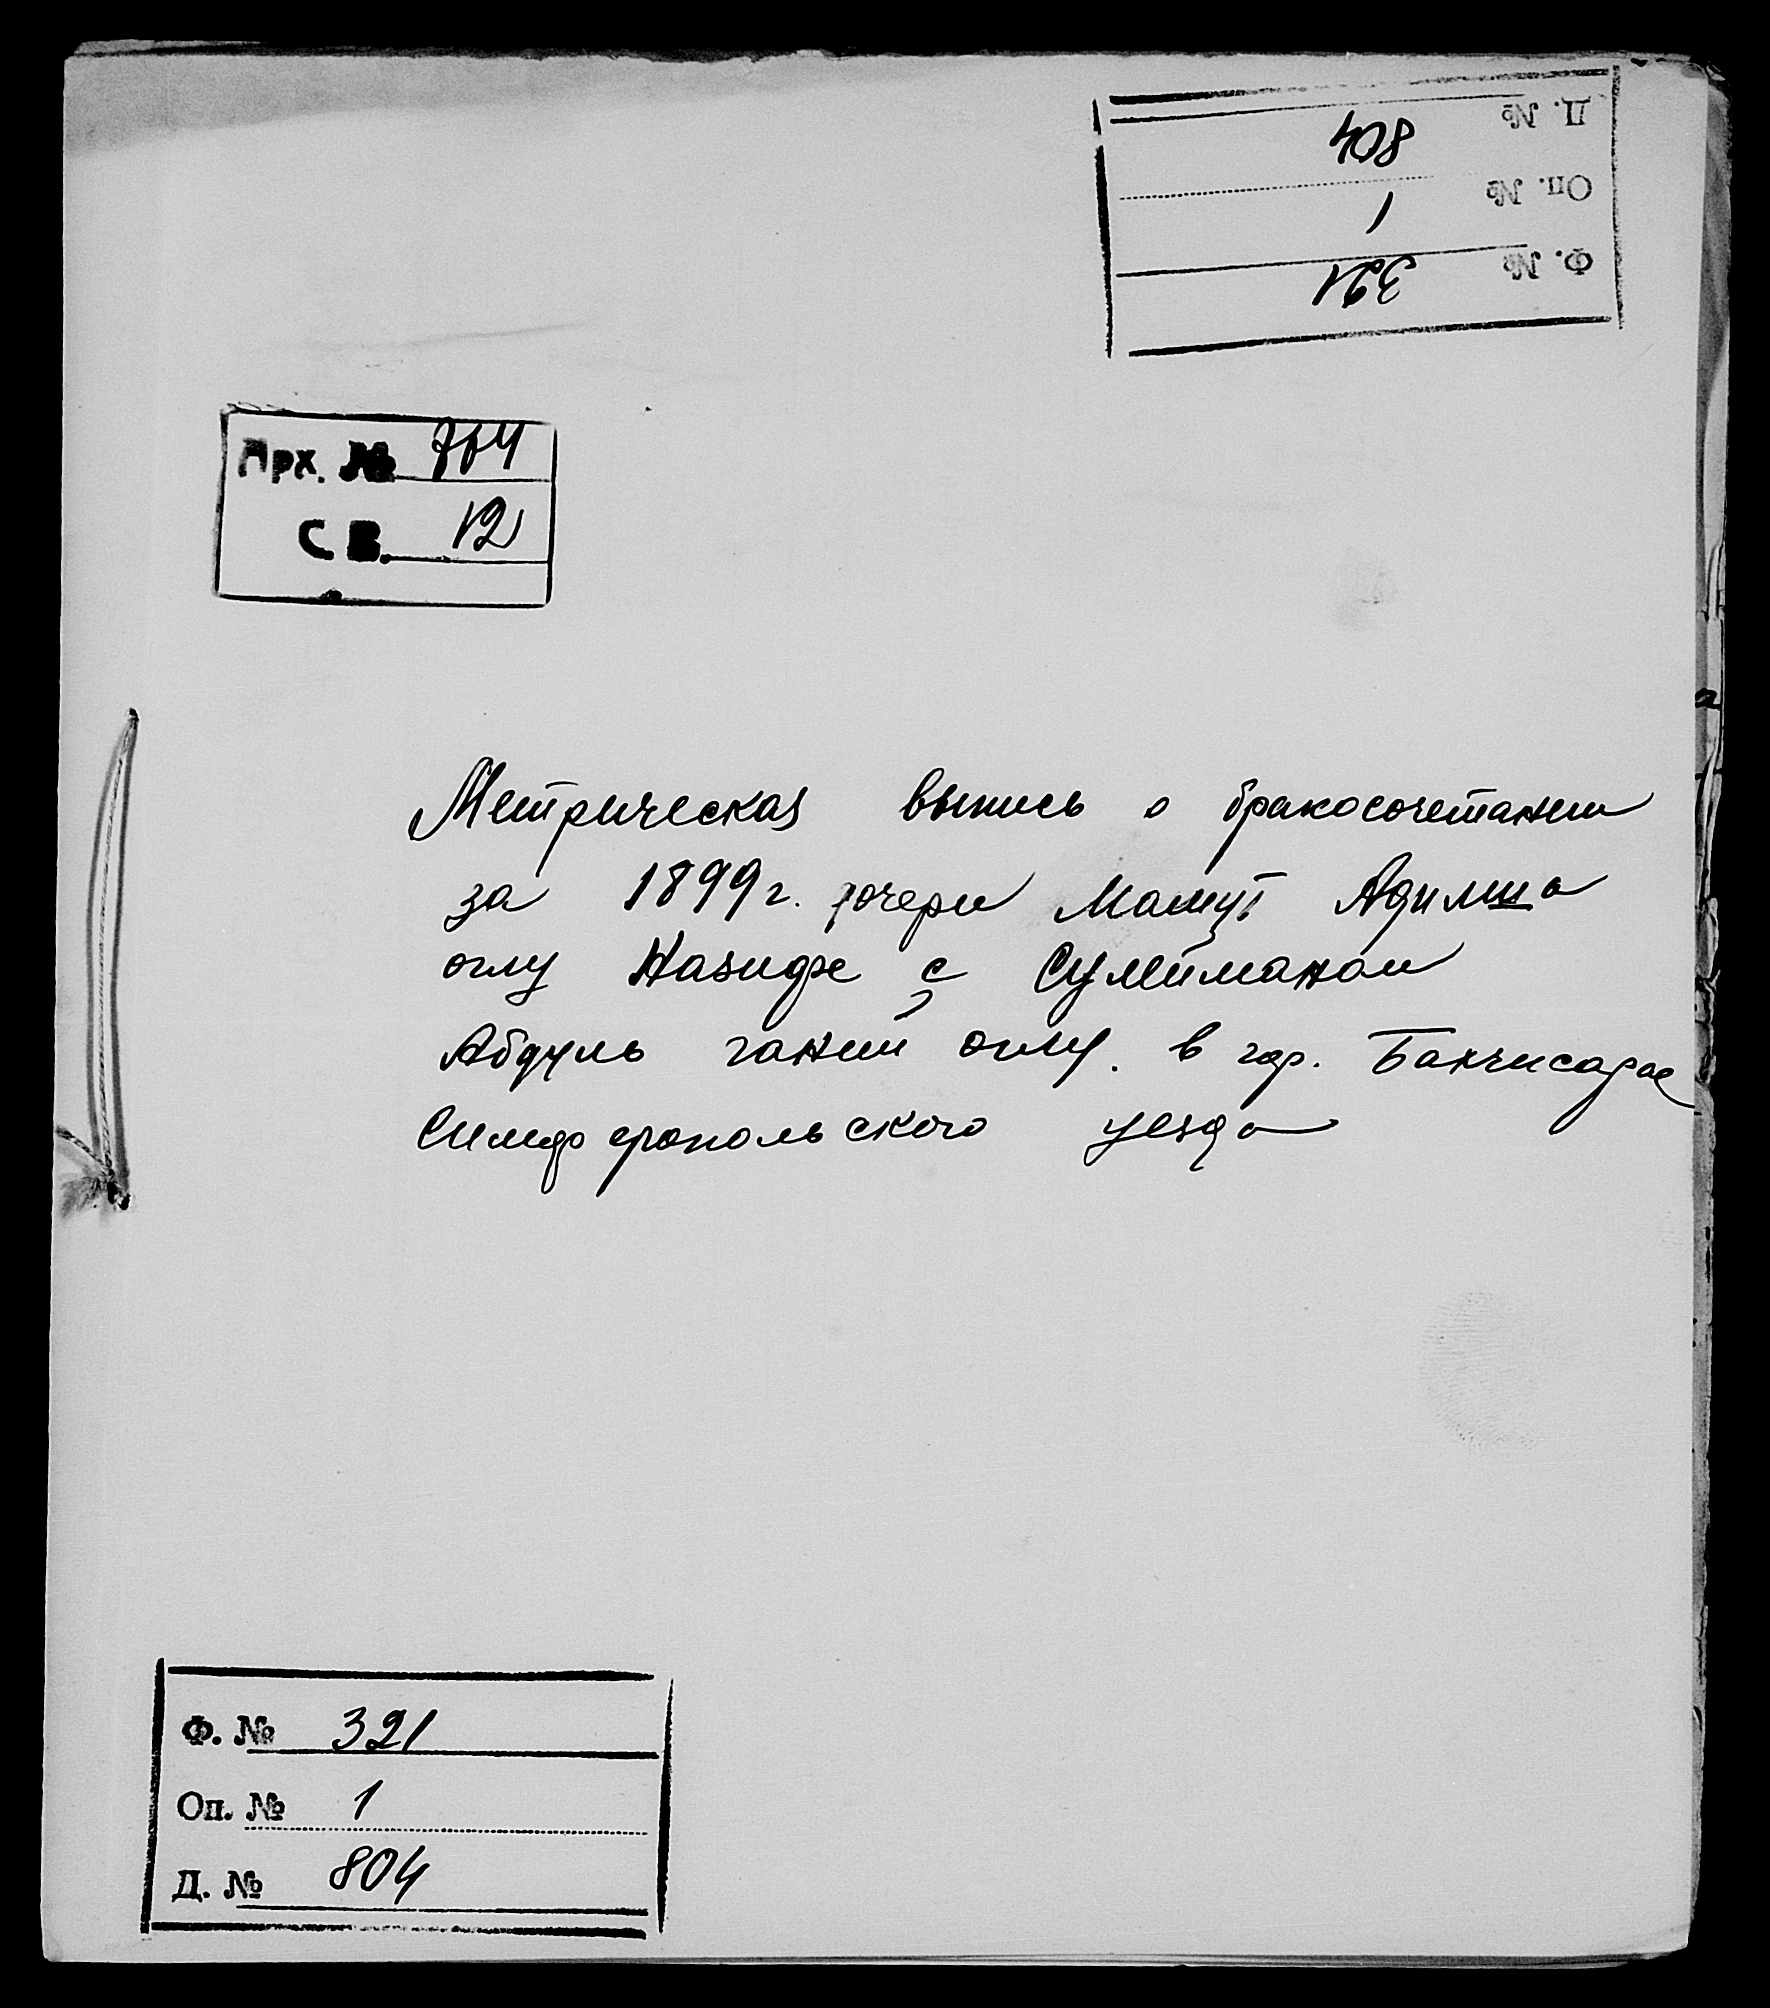 Д. № 804
Оп. № 1
Ф. № 321
Арх. №
СВ. 12
Метрическая выпись о бракосочетании
за 1899 г. дочери Мамут Адилша
оглу Назифе с Сулейманом
Абдуль ганий оглу. в гор. Бахчисарае
Симферопольского уезда
Ф. № 321
Оп. № 1
Д. № 804